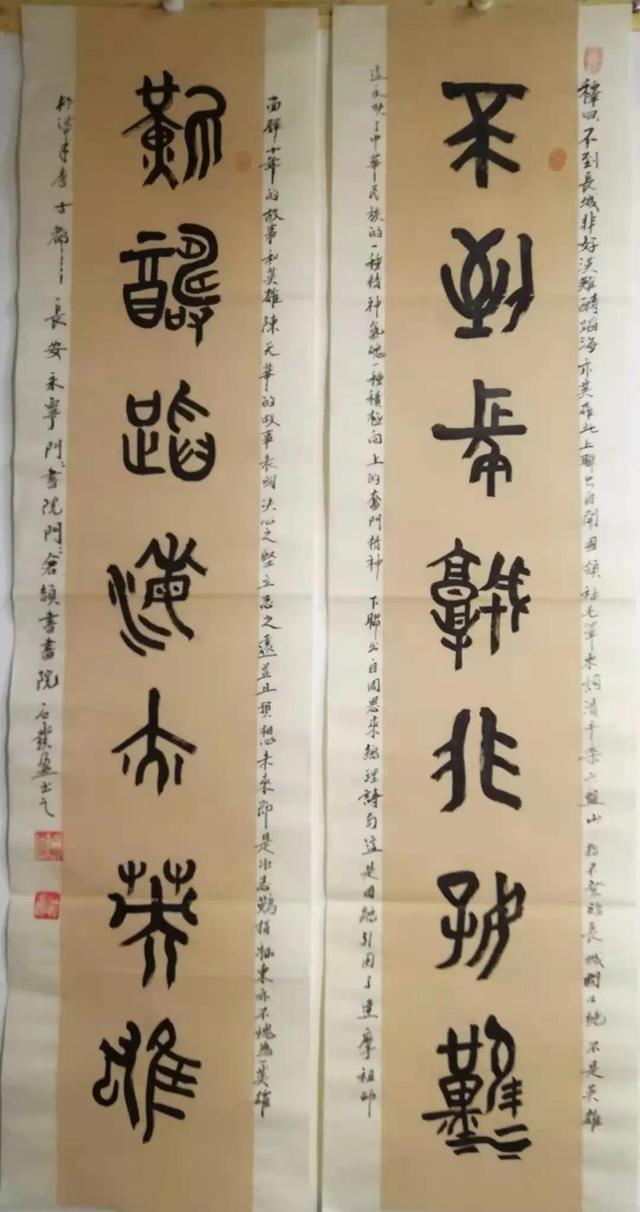 釋曰不到長城非好漢難酬蹈海亦英雄此上聯出自開國領袖毛澤東詞清平樂六盤山 指不登臨長城關口絕不是英雄
不到長城非好漢
這反映了中華民族的一種精神氣魄一種積極向上的奮鬥精神 下聯出自周恩來總理詩句這是周總引用了達摩祖師
面壁十年的故事和英雄陳天華的故事表明決心之堅立志之遠並且預想未來即是壯志難 東亦不愧為英雄
難酬蹈海亦英雄
長安永寧門書院門倉頡書畫院石